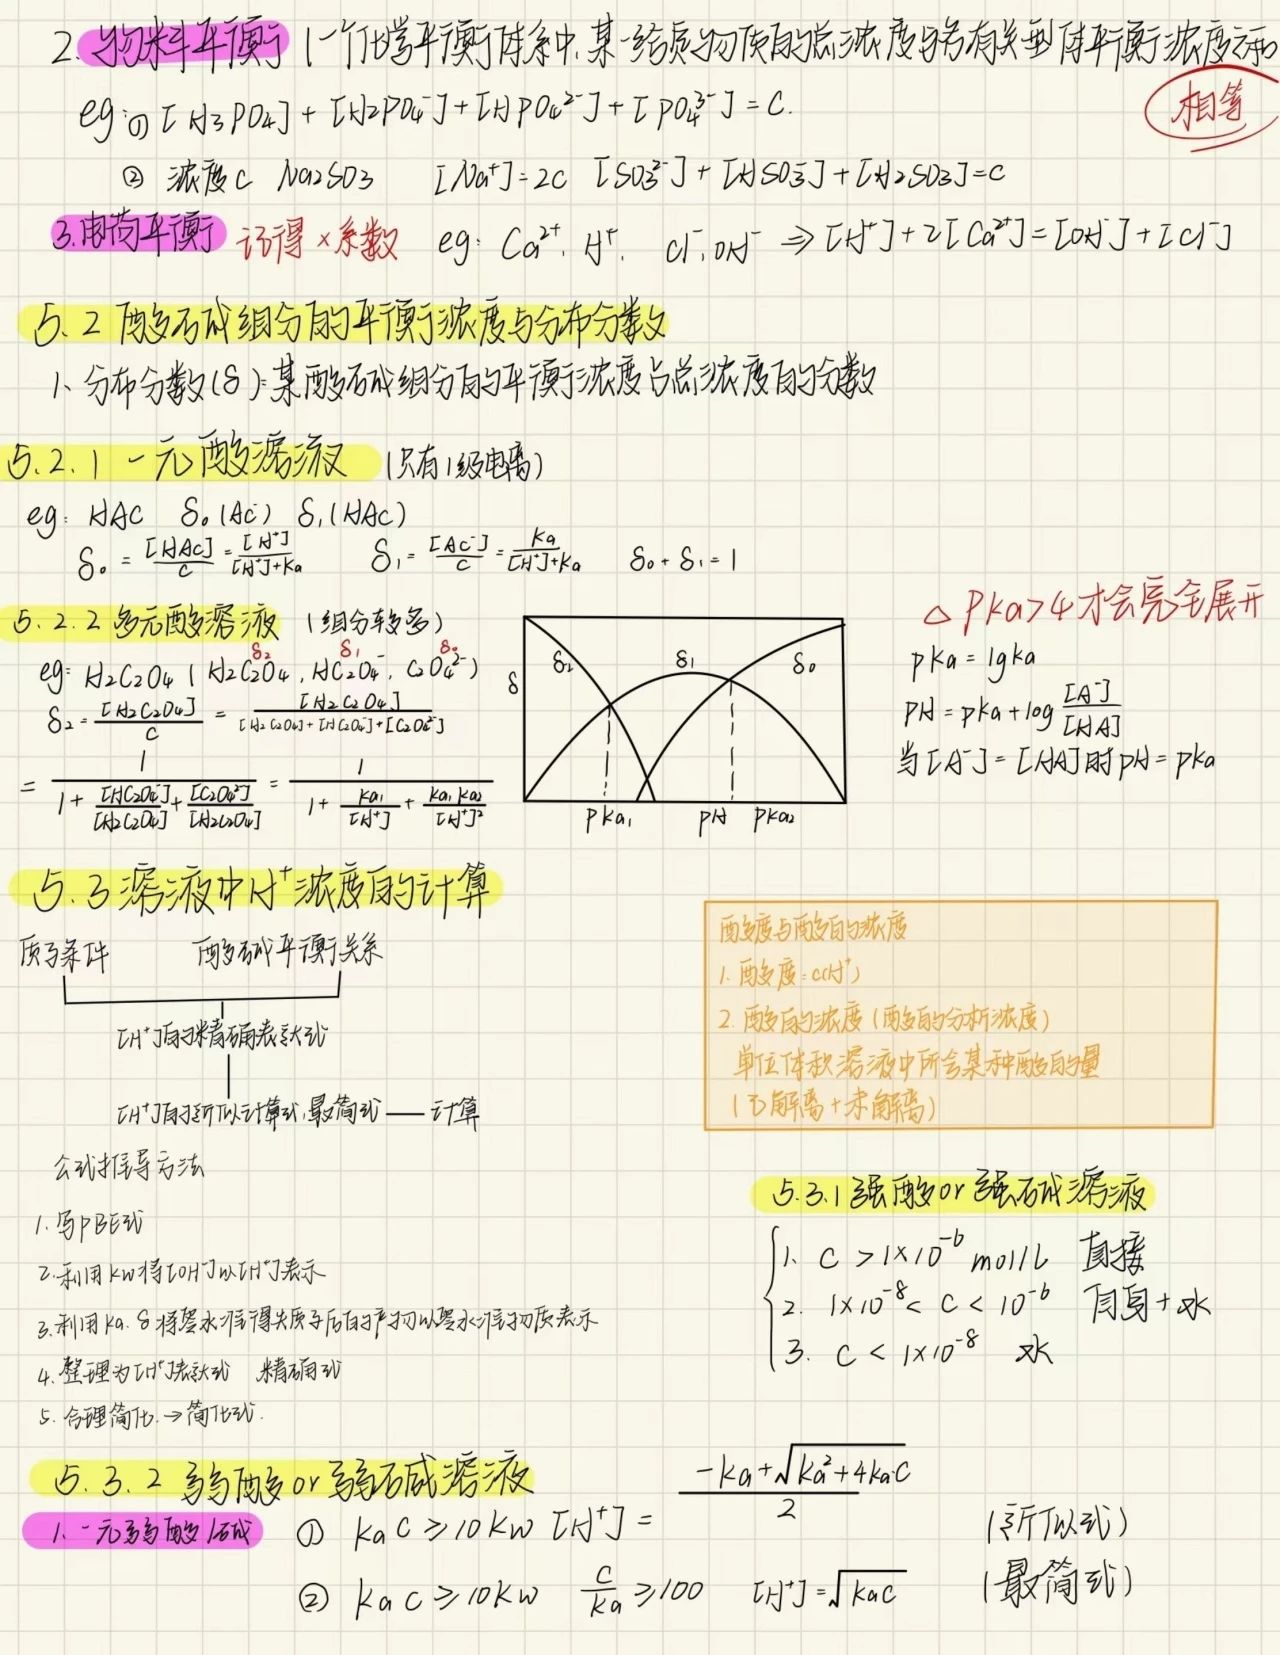 2. 物料平衡 (一个化学平衡体系中,某一给定物质的总浓度与各有关型体平衡浓度之和
相等
eg:① [H3PO4] + [H2PO4⁻] + [HPO4²⁻] + [PO4³⁻] = C.
② 浓度C Na2SO3 [Na⁺]=2C [SO3²⁻] + [HSO3⁻] + [H2SO3]=C
3.电荷平衡 记得×系数 eg: Ca²⁺, H⁺, Cl⁻, OH⁻ ⇒ [H⁺]+2[Ca²⁺]=[OH⁻]+[Cl⁻]
5.2 酸碱组分的平衡浓度与分布分数
1、分布分数(δ):某酸碱组分的平衡浓度占总浓度的分数
5.2.1 一元酸溶液 (只有1级电离)
eg: HAC δ₀(AC⁻) δ₁(HAC)
δ₀ = [HAC]/C = [H⁺]/([H⁺]+Ka) δ₁ = [AC⁻]/C = Ka/([H⁺]+Ka) δ₀+δ₁=1
5.2.2 多元酸溶液 (组分较多)
δ₂ δ₁ δ₀
eg: H2C2O4 ( H2C2O4, HC2O4⁻, C2O4²⁻)
δ₂ = [H2C2O4]/C = [H2C2O4]/([H2C2O4]+[HC2O4⁻]+[C2O4²⁻])
= 1/(1 + [HC2O4⁻]/[H2C2O4] + [C2O4²⁻]/[H2C2O4]) = 1/(1 + Ka₁/[H⁺] + Ka₁Ka₂/[H⁺]²)
δ δ₂ δ₁ δ₀
pKa₁ pH pKa₂
△ pKa>4才会完全展开
pKa = lgKa
pH = pKa + log [A⁻]/[HA]
当[A⁻] = [HA]时pH = pKa
5.3 溶液中H⁺浓度的计算
质子条件 酸碱平衡关系
[H⁺]的精确表达式
[H⁺]的近似计算式,最简式 — 计算
公式推导方法
1. 写PBE式
2. 利用Kw将[OH⁻]以[H⁺]表示
3. 利用Ka. δ将零水准得失质子后的产物以零水准物质表示
4. 整理为[H⁺]表达式 精确式
5. 合理简化. → 简化式.
酸度与酸的浓度
1. 酸度: c(H⁺)
2. 酸的浓度 (酸的分析浓度)
单位体积溶液中所含某种酸的量
(已解离+未解离)
5.3.1 强酸or强碱溶液
1. C > 1×10⁻⁶ mol/L 直接
2. 1×10⁻⁸ < C < 10⁻⁶ 自身+水
3. C < 1×10⁻⁸ 水
5.3.2 弱酸or弱碱溶液
1. 一元弱酸/碱 ① KaC ≥ 10Kw [H⁺] = (-Ka+√(Ka²+4KaC))/2 (近似式)
② KaC ≥ 10Kw C/Ka ≥ 100 [H⁺] = √(KaC) (最简式)